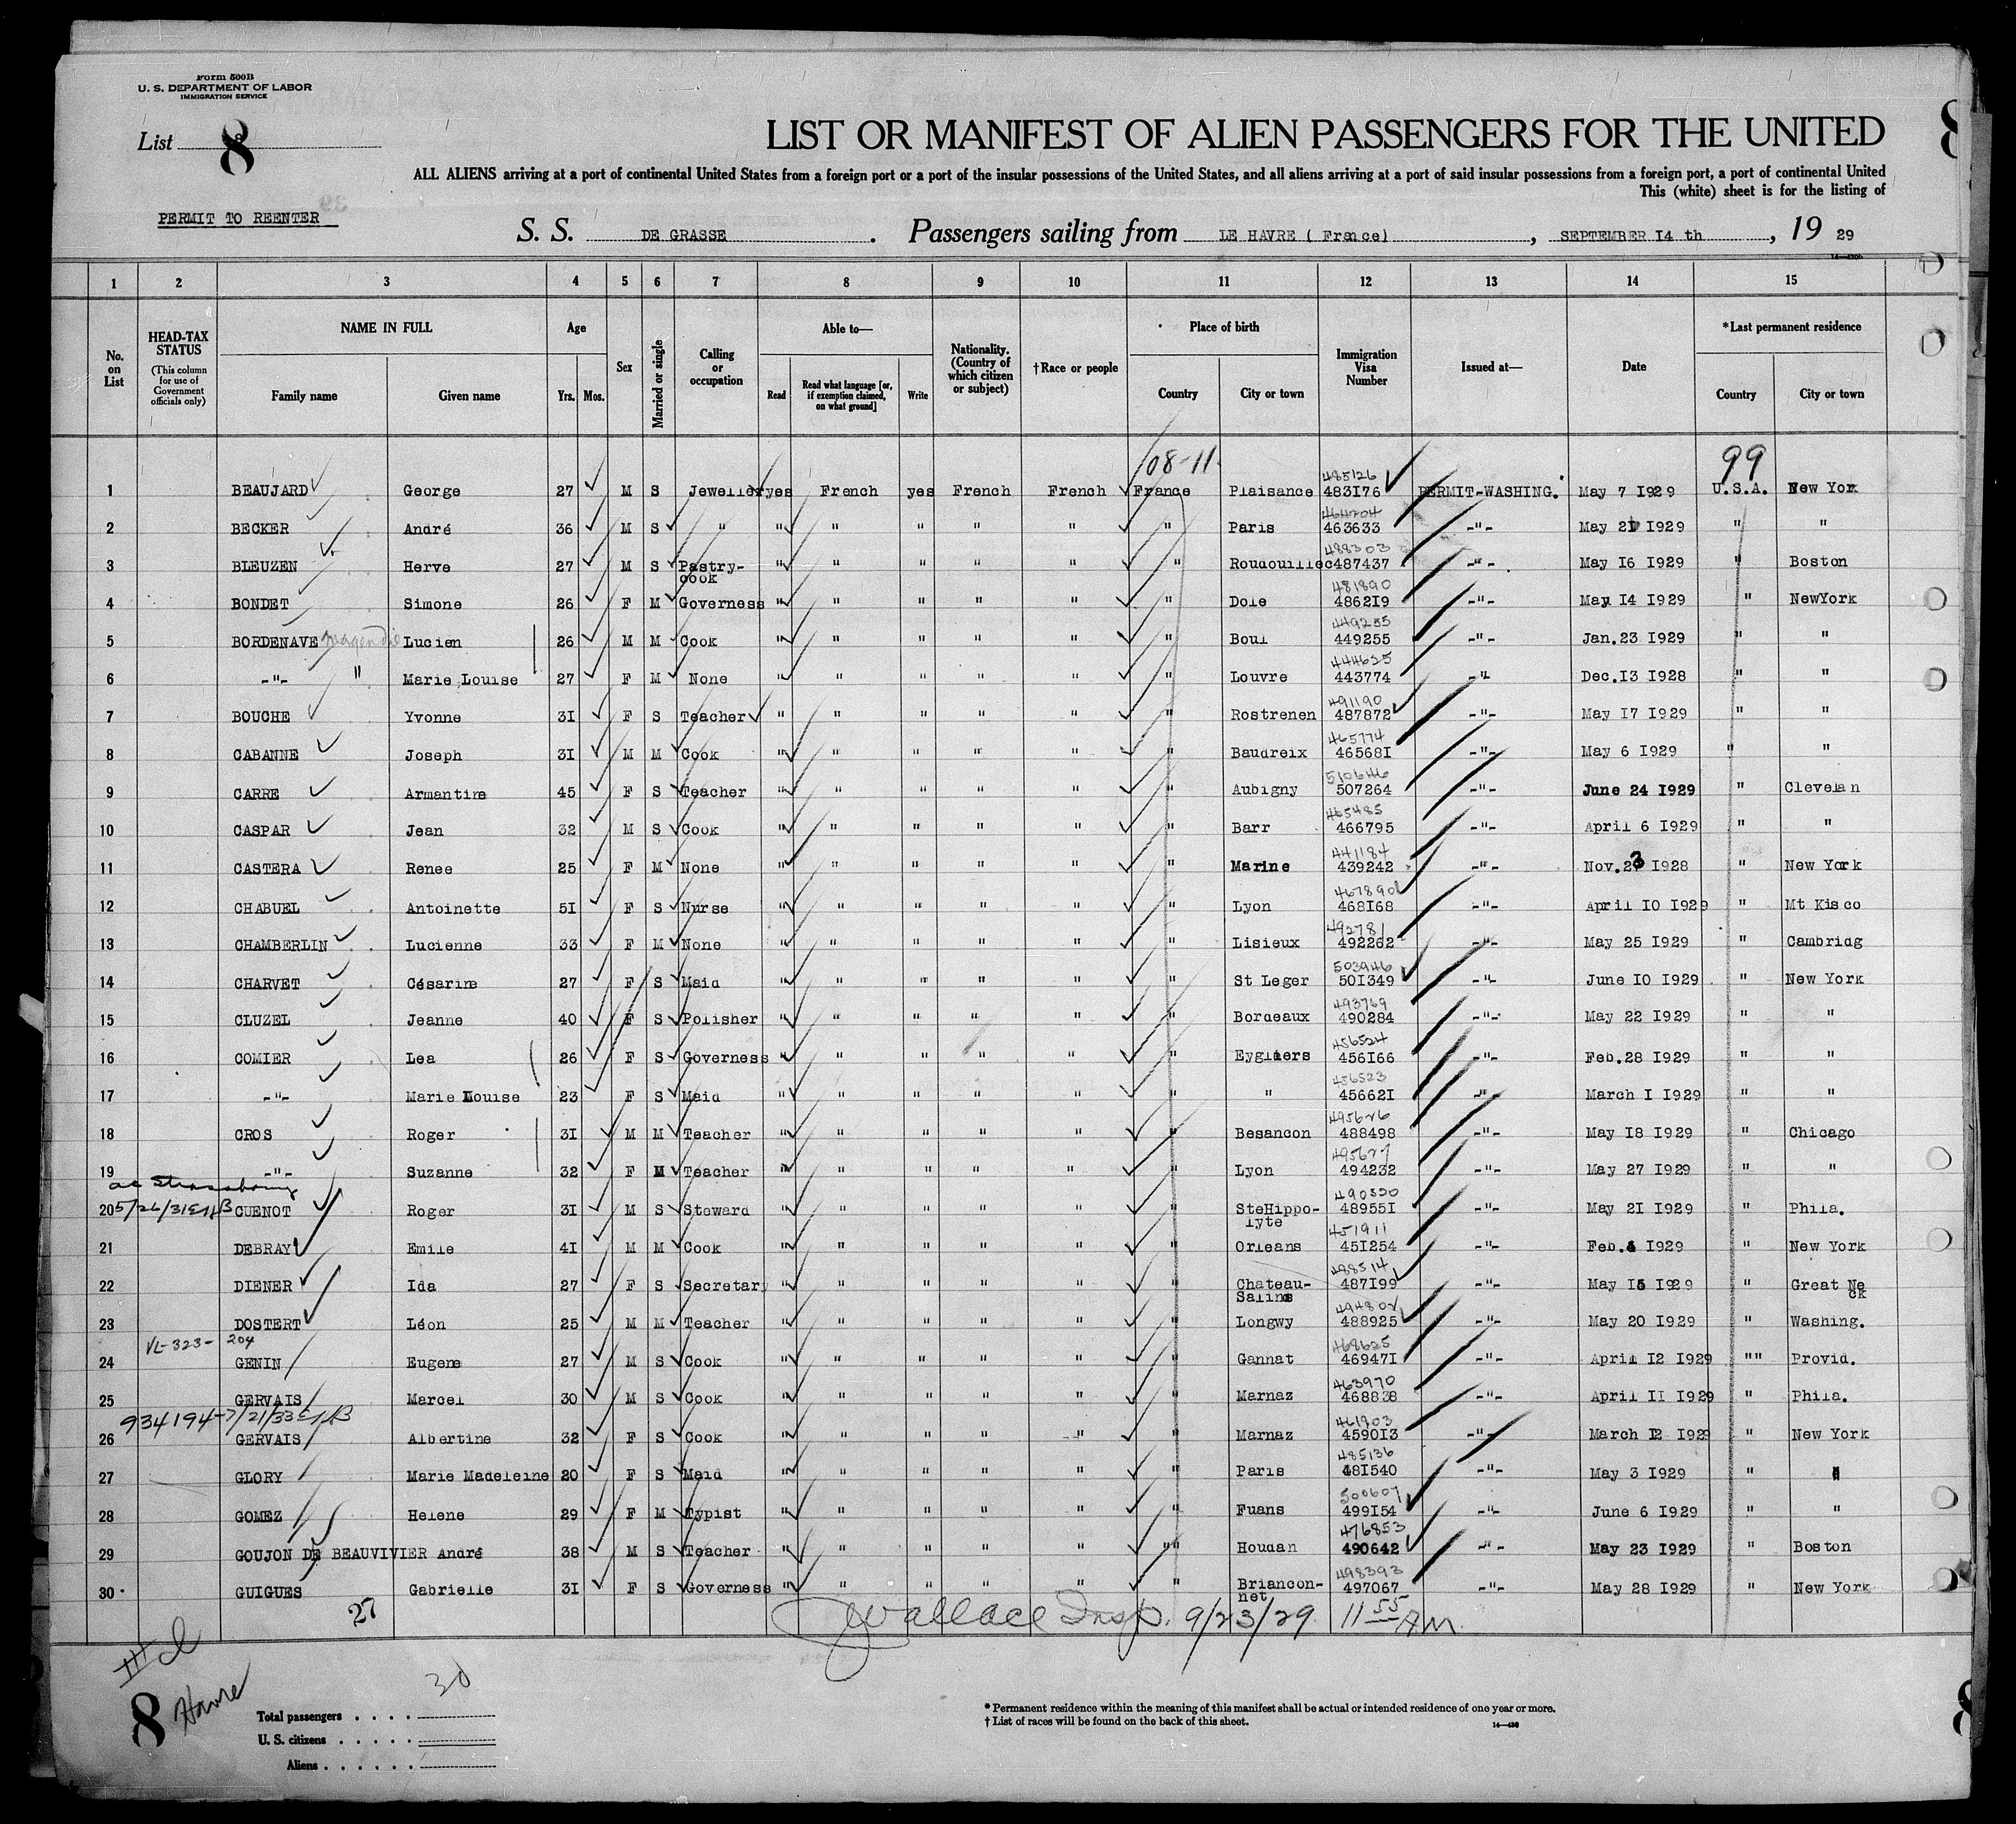 Form 500B
U. S. DEPARTMENT OF LABOR
IMMIGRATION SERVICE
List 8
LIST OR MANIFEST OF ALIEN PASSENGERS FOR THE UNITED
ALL ALIENS arriving at a port of continental United States from a foreign port or a port of the insular possessions of the United States, and all aliens arriving at a port of said insular possessions from a foreign port, a port of continental United
This (white) sheet is for the listing of
PERMIT TO REENTER
S. S. DE GRASSE. Passengers sailing from LE HAVRE ( France), SEPTEMBER I4 th, 19 29
1 2 3 4 5 6 7 8 9 10 11 12 13 14 15
No. on List HEAD-TAX STATUS (This column for use of Government officials only) NAME IN FULL Family name Given name Age Yrs. Mos. Sex Married or single Calling or occupation Able to— Read Read what language [or, if exemption claimed, on what ground] Write Nationality. (Country of which citizen or subject) †Race or people Place of birth Country City or town Immigration Visa Number Issued at— Date *Last permanent residence Country City or town
108-11 485126 99
1 BEAUJARD George 27 M S Jeweller yes French yes French French France Plaisance 483I76 PERMIT-WASHING. May 7 I929 U.S.A. New York
464204
2 BECKER André 36 M S " " " " " " " Paris 463633 -"- May 2I I929 " "
488303
3 BLEUZEN Herve 27 M S Pastry-cook " " " " " " Roudouillec 487437 -"- May I6 I929 " Boston
481890
4 BONDET Simone 26 F M Governess " " " " " " Dole 4862I9 -"- May I4 I929 " NewYork
449255
5 BORDENAVE Lucien 26 M M Cook " " " " " " Boul 449255 -"- Jan.23 I929 " "
444635
6 -"- " Marie Louise 27 F M None " " " " " " Louvre 443774 -"- Dec.I3 I928 " "
491190
7 BOUCHE Yvonne 3I F S Teacher " " " " " " Rostrenen 487872 -"- May I7 I929 " "
465774
8 CABANNE Joseph 3I M M Cook " " " " " " Baudreix 46568I -"- May 6 I929 " "
510646
9 CARRE Armantine 45 F S Teacher " " " " " " Aubigny 507264 -"- June 24 I929 " Clevelan
465485
10 CASPAR Jean 32 M S Cook " " " " " " Barr 466795 -"- April 6 I929 " "
441184
11 CASTERA Renee 25 F M None " " " " " " Marine 439242 -"- Nov.23 I928 " New York
467890
12 CHABUEL Antoinette 5I F S Nurse " " " " " " Lyon 468I68 -"- April I0 I929 " Mt Kisco
492781
13 CHAMBERLIN Lucienne 33 F M None " " " " " " Lisieux 492262 -"- May 25 I929 " Cambridg
503946
14 CHARVET Césarine 27 F S Maid " " " " " " St Leger 50I349 -"- June I0 I929 " New York
493769
15 CLUZEL Jeanne 40 F S Polisher " " " " " " Bordeaux 490284 -"- May 22 I929 " "
456524
16 COMIER Lea 26 F S Governess " " " " " " Eygliers 456I66 -"- Feb.28 I929 " "
456523
17 -"- Marie Louise 23 F S Maid " " " " " " " 45662I -"- March I I929 " "
495626
18 CROS Roger 3I M M Teacher " " " " " " Besancon 488498 -"- May I8 I929 " Chicago
495627
19 -"- Suzanne 32 F M Teacher " " " " " " Lyon 494232 -"- May 27 I929 " "
490520
20 5/26/31 CUENOT Roger 3I M S Steward " " " " " " SteHippo-lyte 48955I -"- May 2I I929 " Phila.
451911
21 DEBRAY Emile 4I M M Cook " " " " " " Orleans 45I254 -"- Feb.6 I929 " New York
488514
22 DIENER Ida 27 F S Secretary " " " " " " Chateau-Salins 487I99 -"- May I5 I929 " Great Neck
494802
23 DOSTERT Léon 25 M M Teacher " " " " " " Longwy 488925 -"- May 20 I929 " Washing.
VL-323-204 468625
24 GENIN Eugene 27 M S Cook " " " " " " Gannat 46947I -"- April I2 I929 "" Provid.
463970
25 GERVAIS Marcel 30 M S Cook " " " " " " Marnaz 468838 -"- April II I929 " Phila.
934194-7/21/33 461903
26 GERVAIS Albertine 32 F S Cook " " " " -"- " Marnaz 4590I3 -"- March I2 I929 " New York
485136
27 GLORY Marie Madeleine 20 F S Maid " " " " " " Paris 48I540 -"- May 3 I929 " "
500607
28 GOMEZ Helene 29 F M Typist " " " " " " Fuans 499I54 -"- June 6 I929 " "
476853
29 GOUJON DE BEAUVIVIER André 38 M S Teacher " " " " " "" Houdan 490642 -"- May 23 I929 " Boston
498393
30 GUIGUES Gabrielle 3I F S Governess " " " " " " Briancon-net 497067 -"- May 28 I929 " New York
27 Wallace Insp. 9/23/29 11 55 AM.
8 Havre
Total passengers 30
U. S. citizens
Aliens
* Permanent residence within the meaning of this manifest shall be actual or intended residence of one year or more.
† List of races will be found on the back of this sheet.